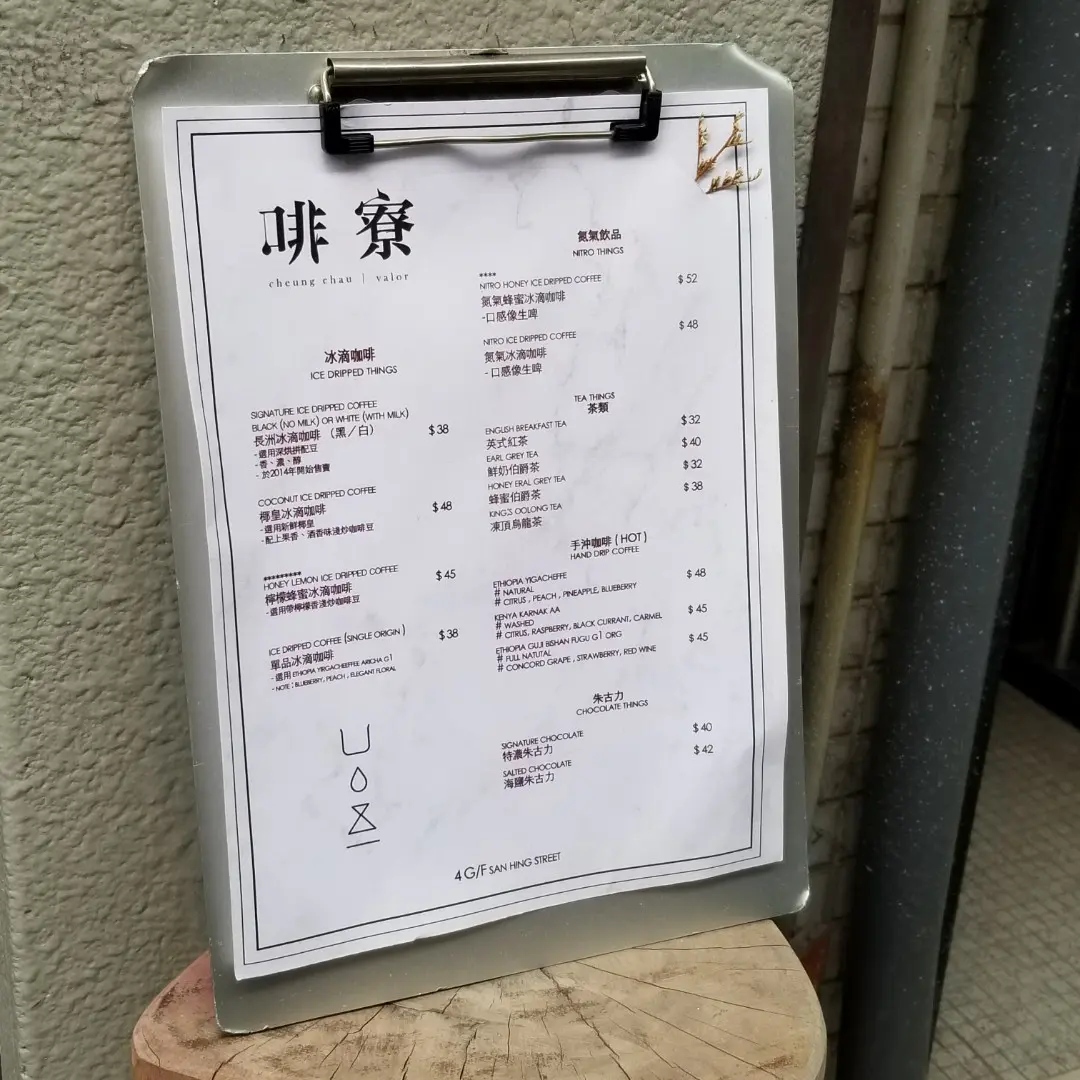 啡寮
cheung chau | valor
冰滴咖啡
ICE DRIPPED THINGS
SIGNATURE ICE DRIPPED COFFEE
BLACK (NO MILK) OR WHITE (WITH MILK)
長洲冰滴咖啡 (黑／白) $38
-選用深烘拼配豆
-香、濃、醇
- 於2014年開始售賣
COCONUT ICE DRIPPED COFFEE
椰皇冰滴咖啡 $48
-選用新鮮椰皇
-配上果香、酒香味淺炒咖啡豆
*********
HONEY LEMON ICE DRIPPED COFFEE $45
檸檬蜂蜜冰滴咖啡
-選用帶檸檬香淺炒咖啡豆
ICE DRIPPED COFFEE (SINGLE ORIGIN) $38
單品冰滴咖啡
- 選用 ETHIOPIA YIRGACHEEFFEE ARICHA G1
- NOTE : BLUEBERRY, PEACH , ELEGANT FLORAL
氮氣飲品
NITRO THINGS
****
NITRO HONEY ICE DRIPPED COFFEE $52
氮氣蜂蜜冰滴咖啡
-口感像生啤
NITRO ICE DRIPPED COFFEE $48
氮氣冰滴咖啡
- 口感像生啤
TEA THINGS
茶類
ENGLISH BREAKFAST TEA $32
英式紅茶
EARL GREY TEA $40
鮮奶伯爵茶
HONEY ERAL GREY TEA $32
蜂蜜伯爵茶
KING'S OOLONG TEA $38
凍頂烏龍茶
手沖咖啡 ( HOT )
HAND DRIP COFFEE
ETHIOPIA YIGACHEFFE $48
# NATURAL
# CITRUS , PEACH , PINEAPPLE, BLUEBERRY
KENYA KARNAK AA $45
# WASHED
# CITRUS, RASPBERRY, BLACK CURRANT, CARMEL
ETHIOPIA GUJI BISHAN FUGU G1 ORG $45
# FULL NATUTAL
# CONCORD GRAPE , STRAWBERRY, RED WINE
朱古力
CHOCOLATE THINGS
SIGNATURE CHOCOLATE $40
特濃朱古力
SALTED CHOCOLATE $42
海鹽朱古力
4 G/F SAN HING STREET